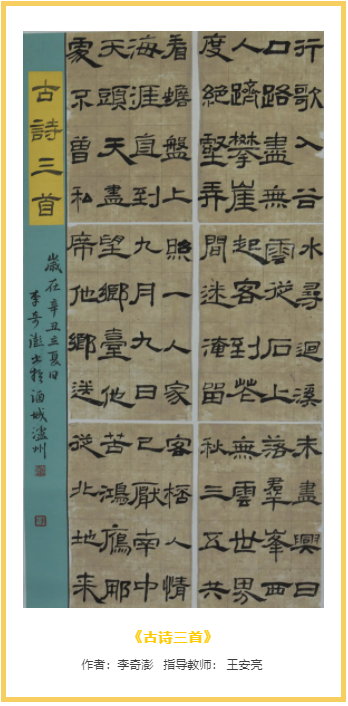 行歌入谷
口路盡無
人躋攀崖
度絕壑弄
水尋迴溪
雲從石上
起客到花
間迷淹留
未盡興日
落羣峯西
無雲世界
秋三五共
看蟾盤上
海涯直到
天頭天盡
處不曾私
照一人家
九月九日
望鄉臺他
席他鄉送
客桮人情
已厭南中
苦鴻鴈那
從北地来
古詩三首
歲在辛丑立夏日
李奇澎書於酒城瀘州
《古诗三首》
作者：李奇澎 指导教师：王安亮